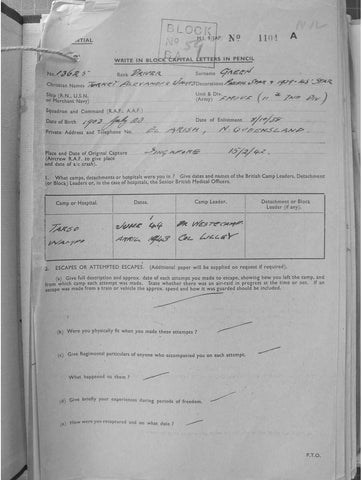 BLOCK
No 59
B A
No 1101 A
WRITE IN BLOCK CAPITAL LETTERS IN PENCIL
No. Rank DRIVER Surname GREEN
Christian Names ALEXANDER Decorations STAR
Ship (R.N., U.S.N. or Merchant Navy) Unit & Div. (Army)
Squadron and Command (R.A.F. A.A.F.)
Date of Birth 1903 July 23 Date of Enlistment
Private Address and Telephone No. EL ARISH, N. QUEENSLAND.
Place and Date of Original Capture SINGAPORE 15/2/42.
(Aircrew R.A.F. to give place
and date of a/c crash).
1. What camps, detachments or hospitals were you in? Give dates and names of the British Camp Leaders, Detachment
(or Block) Leaders or, in the case of hospitals, the Senior British Medical Officers.
Camp or Hospital. Dates. Camp Leader. Detachment or Block Leader (if any).
JUNE 44
APRIL 1943 COL LILLEY
2. ESCAPES OR ATTEMPTED ESCAPES. (Additional paper will be supplied on request if required).
(a) Give full description and approx. date of each attempt you made to escape, showing how you left the camp, and
from which camp each attempt was made. State whether there was an air-raid in progress at the time or not. If an
escape was made from a train or vehicle the approx. speed and how it was guarded should be included.
(b) Were you physically fit when you made these attempts?
(c) Give Regimental particulars of anyone who accompanied you on each attempt.
What happened to them?
(d) Give briefly your experiences during periods of freedom.
(e) How were you recaptured and on what date?
P.T.O.